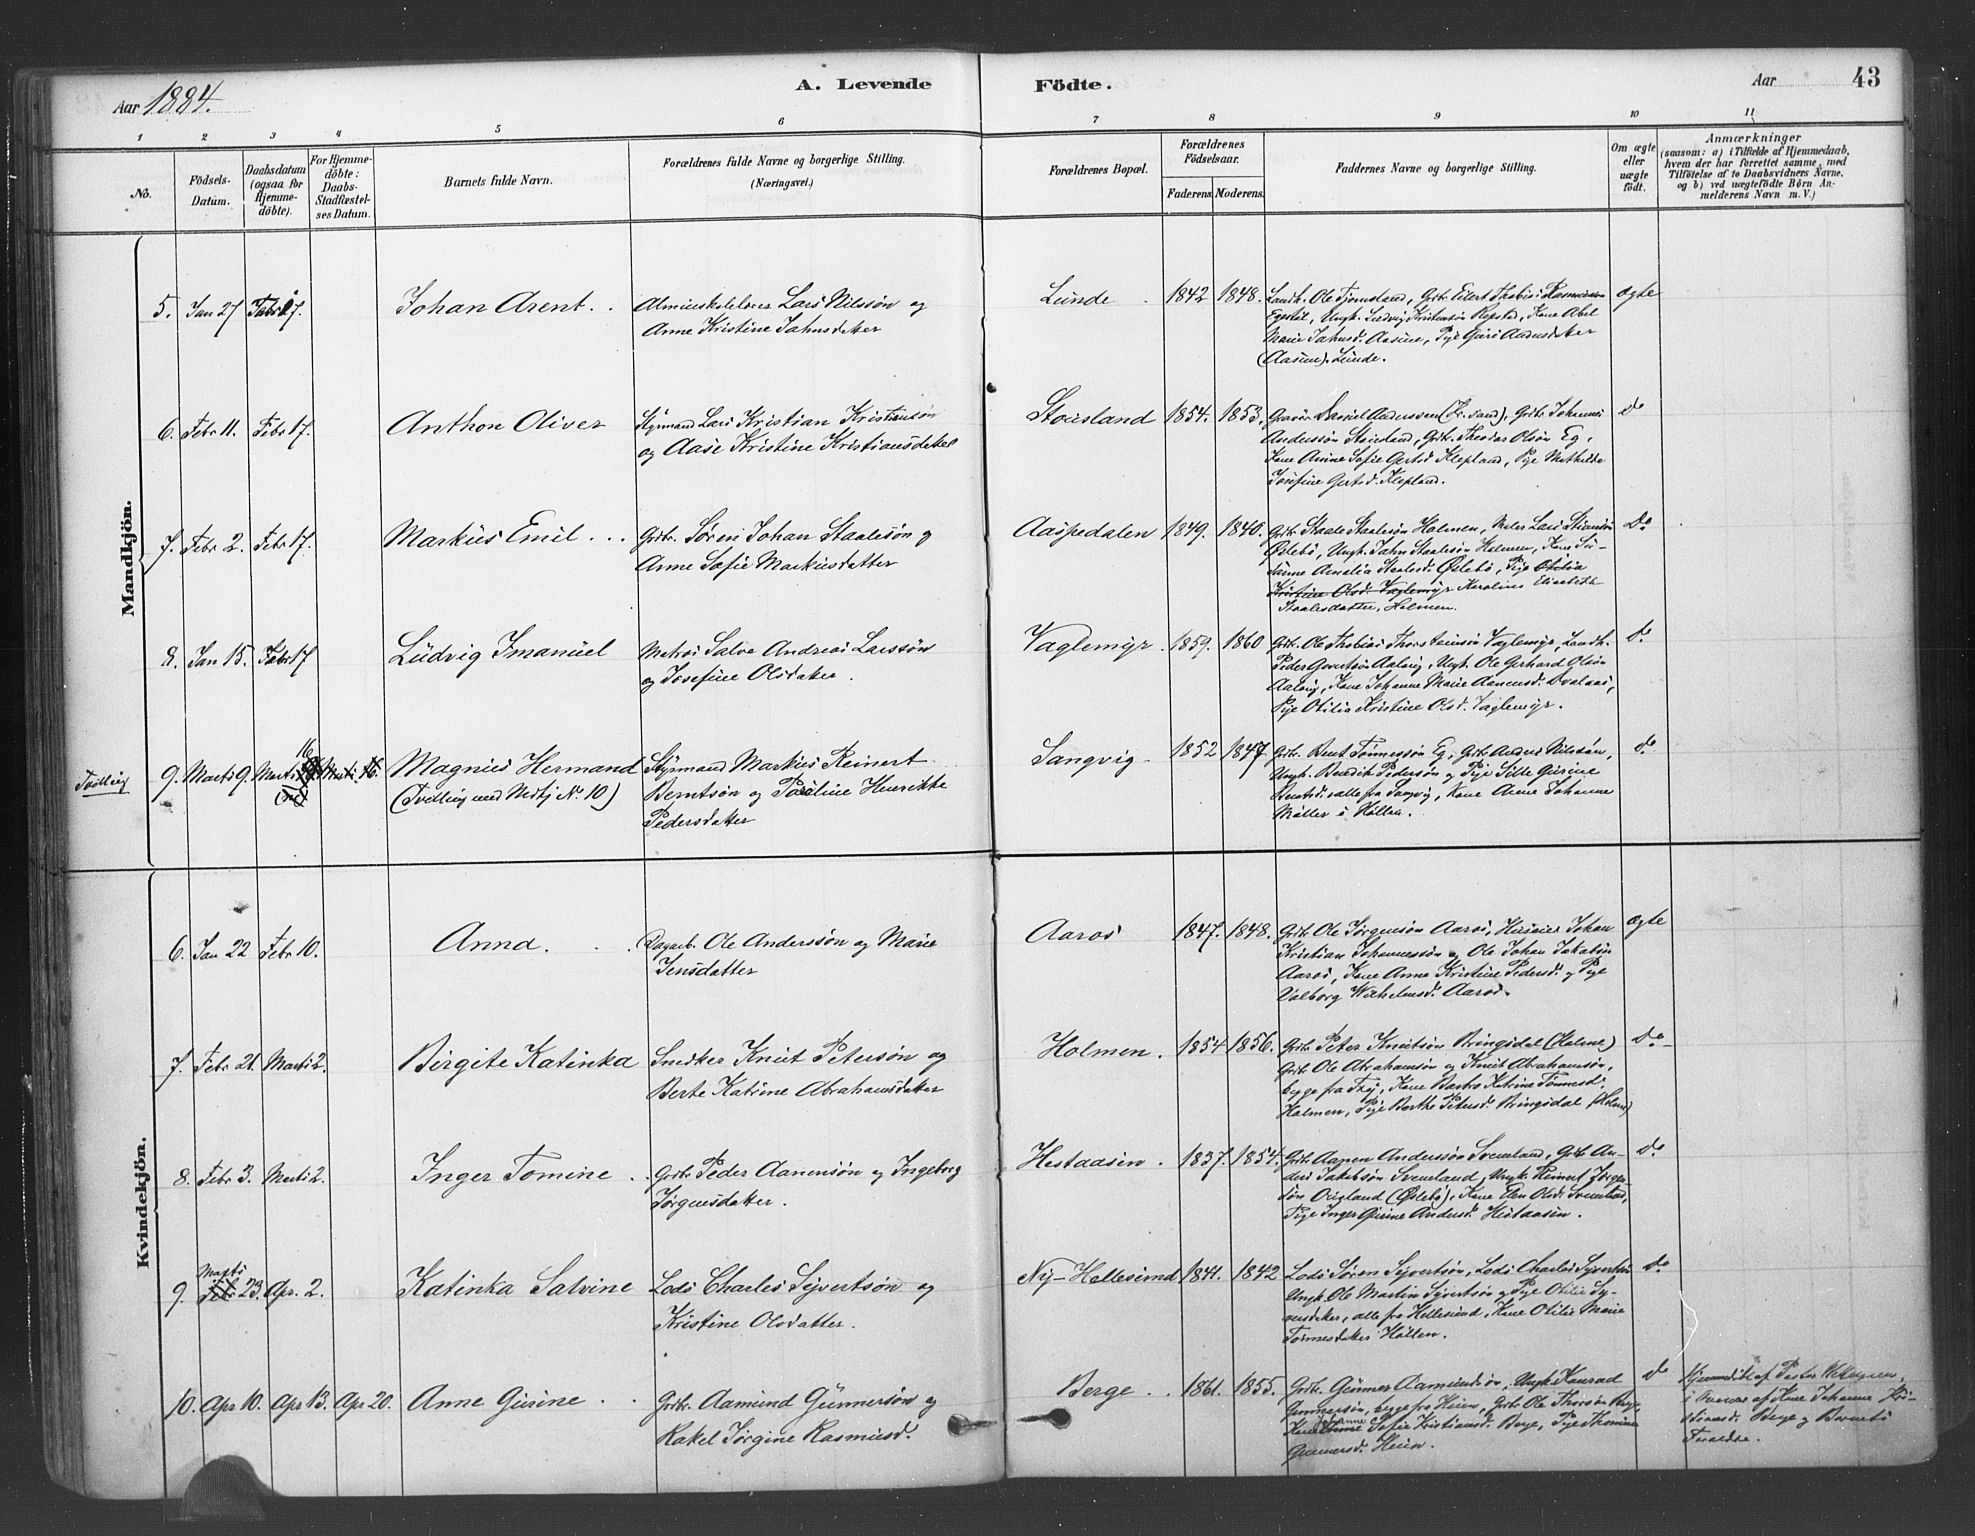 Aar 1884.
A. Levende
Födte.
Aar
43
1 2 3 4 5 6 7 8 9 10 11
No.
Födsels-Datum.
Daabsdatum (ogsaa for Hjemmedöbte).
For Hjemmedöbte: Daabs-Stadfæstelses Datum.
Barnets fulde Navn.
Forældrenes fulde Navne og borgerlige Stilling.
(Næringsvei.)
Forældrenes Bopæl.
Forældrenes Födselsaar.
Faderens. Moderens.
Faddernes Navne og borgerlige Stilling.
Om ægte eller uægte födt.
Anmærkninger
(saasom: a) i Tilfælde af Hjemmedaab,
hvem der har forrettet samme, med
Tilföielse af to Daabsvidners Navne,
og b) ved uægtefödte Börn An-
melderens Navn m. V.)
Mandkjön.
5. Jan 27 Febr 17. Johan Arent. Lars Nilssøn og
Anne Kristine Jahnsdatter
Lunde 1842 1848.
Ole Tjomsland, Kone Abel
Marie Jahnsd. Aasine,
(Aasine). Lunde.
ægte
6. Febr 11. Febr 17. Anthon Oliver Styrmand Lars Kristian Kristiansøn
og Aase Kristine Kristiansdatter
Stousland 1854. 1853.
Daniel Anderssen (Kr.sand), Grbr. Johannes
Anderssøn Stausland, Grbr. Theodor Olsøn Eg,
Kone Anine Sofie Gertsd. Klepland, Pige Mathilde
Josefine Gertsd. Klepland.
do
7. Febr 2. Febr 17. Markus Emil Grbr. Søren Johan Staalesøn og
Anne Sofie Markusdatter
Aaspedalen 1849. 1840.
Grbr. Staale Staalesøn Holmen,
Øslebø, Ungk. Jahn Staalesøn Holmen, Kone Su-
sanne Amalia Staalesd. Øslebø, Pige Otilia
Kristine Olsd. Vaglemyr Karoline Elisabeth
Staalesdatter, Holmen.
Do
8. Jan 15. Febr 17 Ludvig Imanuel Matros Salve Andreas Larssøn
og Josefine Olsdatter.
Vaglemyr 1859. 1860
Grbr. Ole Thobias Thorsteinsøn Vaglemyr,
Peder Govertsøn Aalvig, Ungk. Ole Gerhard Olsøn
Aalvig, Kone Johanne Marie
Pige Otilia Kristine Olsd. Vaglemyr.
do
Tvilling
9. Marts 9. Marts 16 Magnus Hermand
(Tvilling med No. 10)
Styrmand Markus Reinert
Berntsøn og Pauline Henrikke
Pedersdatter
Sangvig 1852 1847
Grbr. Bent Tønnessøn Eg, Grbr. Anders Nilssøn,
Ungk. Benedik Pedersøn og Pige Sille Gurine
Bentsd. alle fra Sangvig, Kone Anne Johanne
Møller i Høllen.
do
Kvindekjön.
6. Jan 22 Febr 10. Anna. Dagarb. Ole Anderssøn og Marie
Jensdatter
Aaros 1847. 1848.
Grbr. Ole Jørgensøn Aaros, Johan
Kristian Johannessøn og Ole Johan Jakobsøn
Aaros, Kone Anne Kristine Pedersd. og Pige
Valborg Wilhelmsd. Aaros.
ægte
7. Febr 21. Marts 2. Birgite Katinka Snedker Knut Petersøn og
Berte Katrine Abrahamsdatter
Holmen. 1854 1856.
Grbr. Peter Knutsøn Bringsdal (Holme)
Grbr. Ole Abrahamsøn og Knut Abrahamsøn,
begge fra Try, Kone Katrine Tønnesd.
Holmen, Pige Berthe Petersd. Bringsdal (Holme)
do
8. Febr 3. Marts 2. Inger Tomine Grbr. Peder Aanensøn og Ingeborg
Jørgensdatter.
Hestaasen. 1837. 1854.
Grbr. Aanen Anderssøn Svenland, Grb. An-
ders Jakobsøn Svenland, Ungk. Reinert Jørgen-
søn (Øslebø), Kone Elen Olsd.
Pige Inger Gurine Andersd. Hestaasen.
do
9. Marts 23. Apr. 2. Katinka Salvine Lods Charles Syvertsøn og
Kristine Olsdatter.
Ny-Hellesund 1841. 1842
Lods Søren Syvertsøn, Lods Charles Syvertsøn
Ungk. Ole Martin Syvertsøn og Pige Otilie Sy-
vertsdatter, alle fra Hellesund, Kone Otilie Marie
Tønnesdatter Høllen.
do
10. Apr 10. Apr 13. Apr 20. Anne Gurine Grbr. Aamund Gunnersøn og
Rakel Jørgine Rasmusd.
Berge 1861. 1855.
Grbr. Gunner Aamundsøn, Ungk. Konrad
Gunnersøn, begge fra Heien, Grbr. Ole Thorsøn Berge,
Kone Johanne Sofie Kristiansd. Berge, Pige Thomine
Gunnersd. Heien.
do
Hjemmedøbt af Pastor
af Kone Johanne Kri-
stiansd. Berge og Barnets
Forældre.